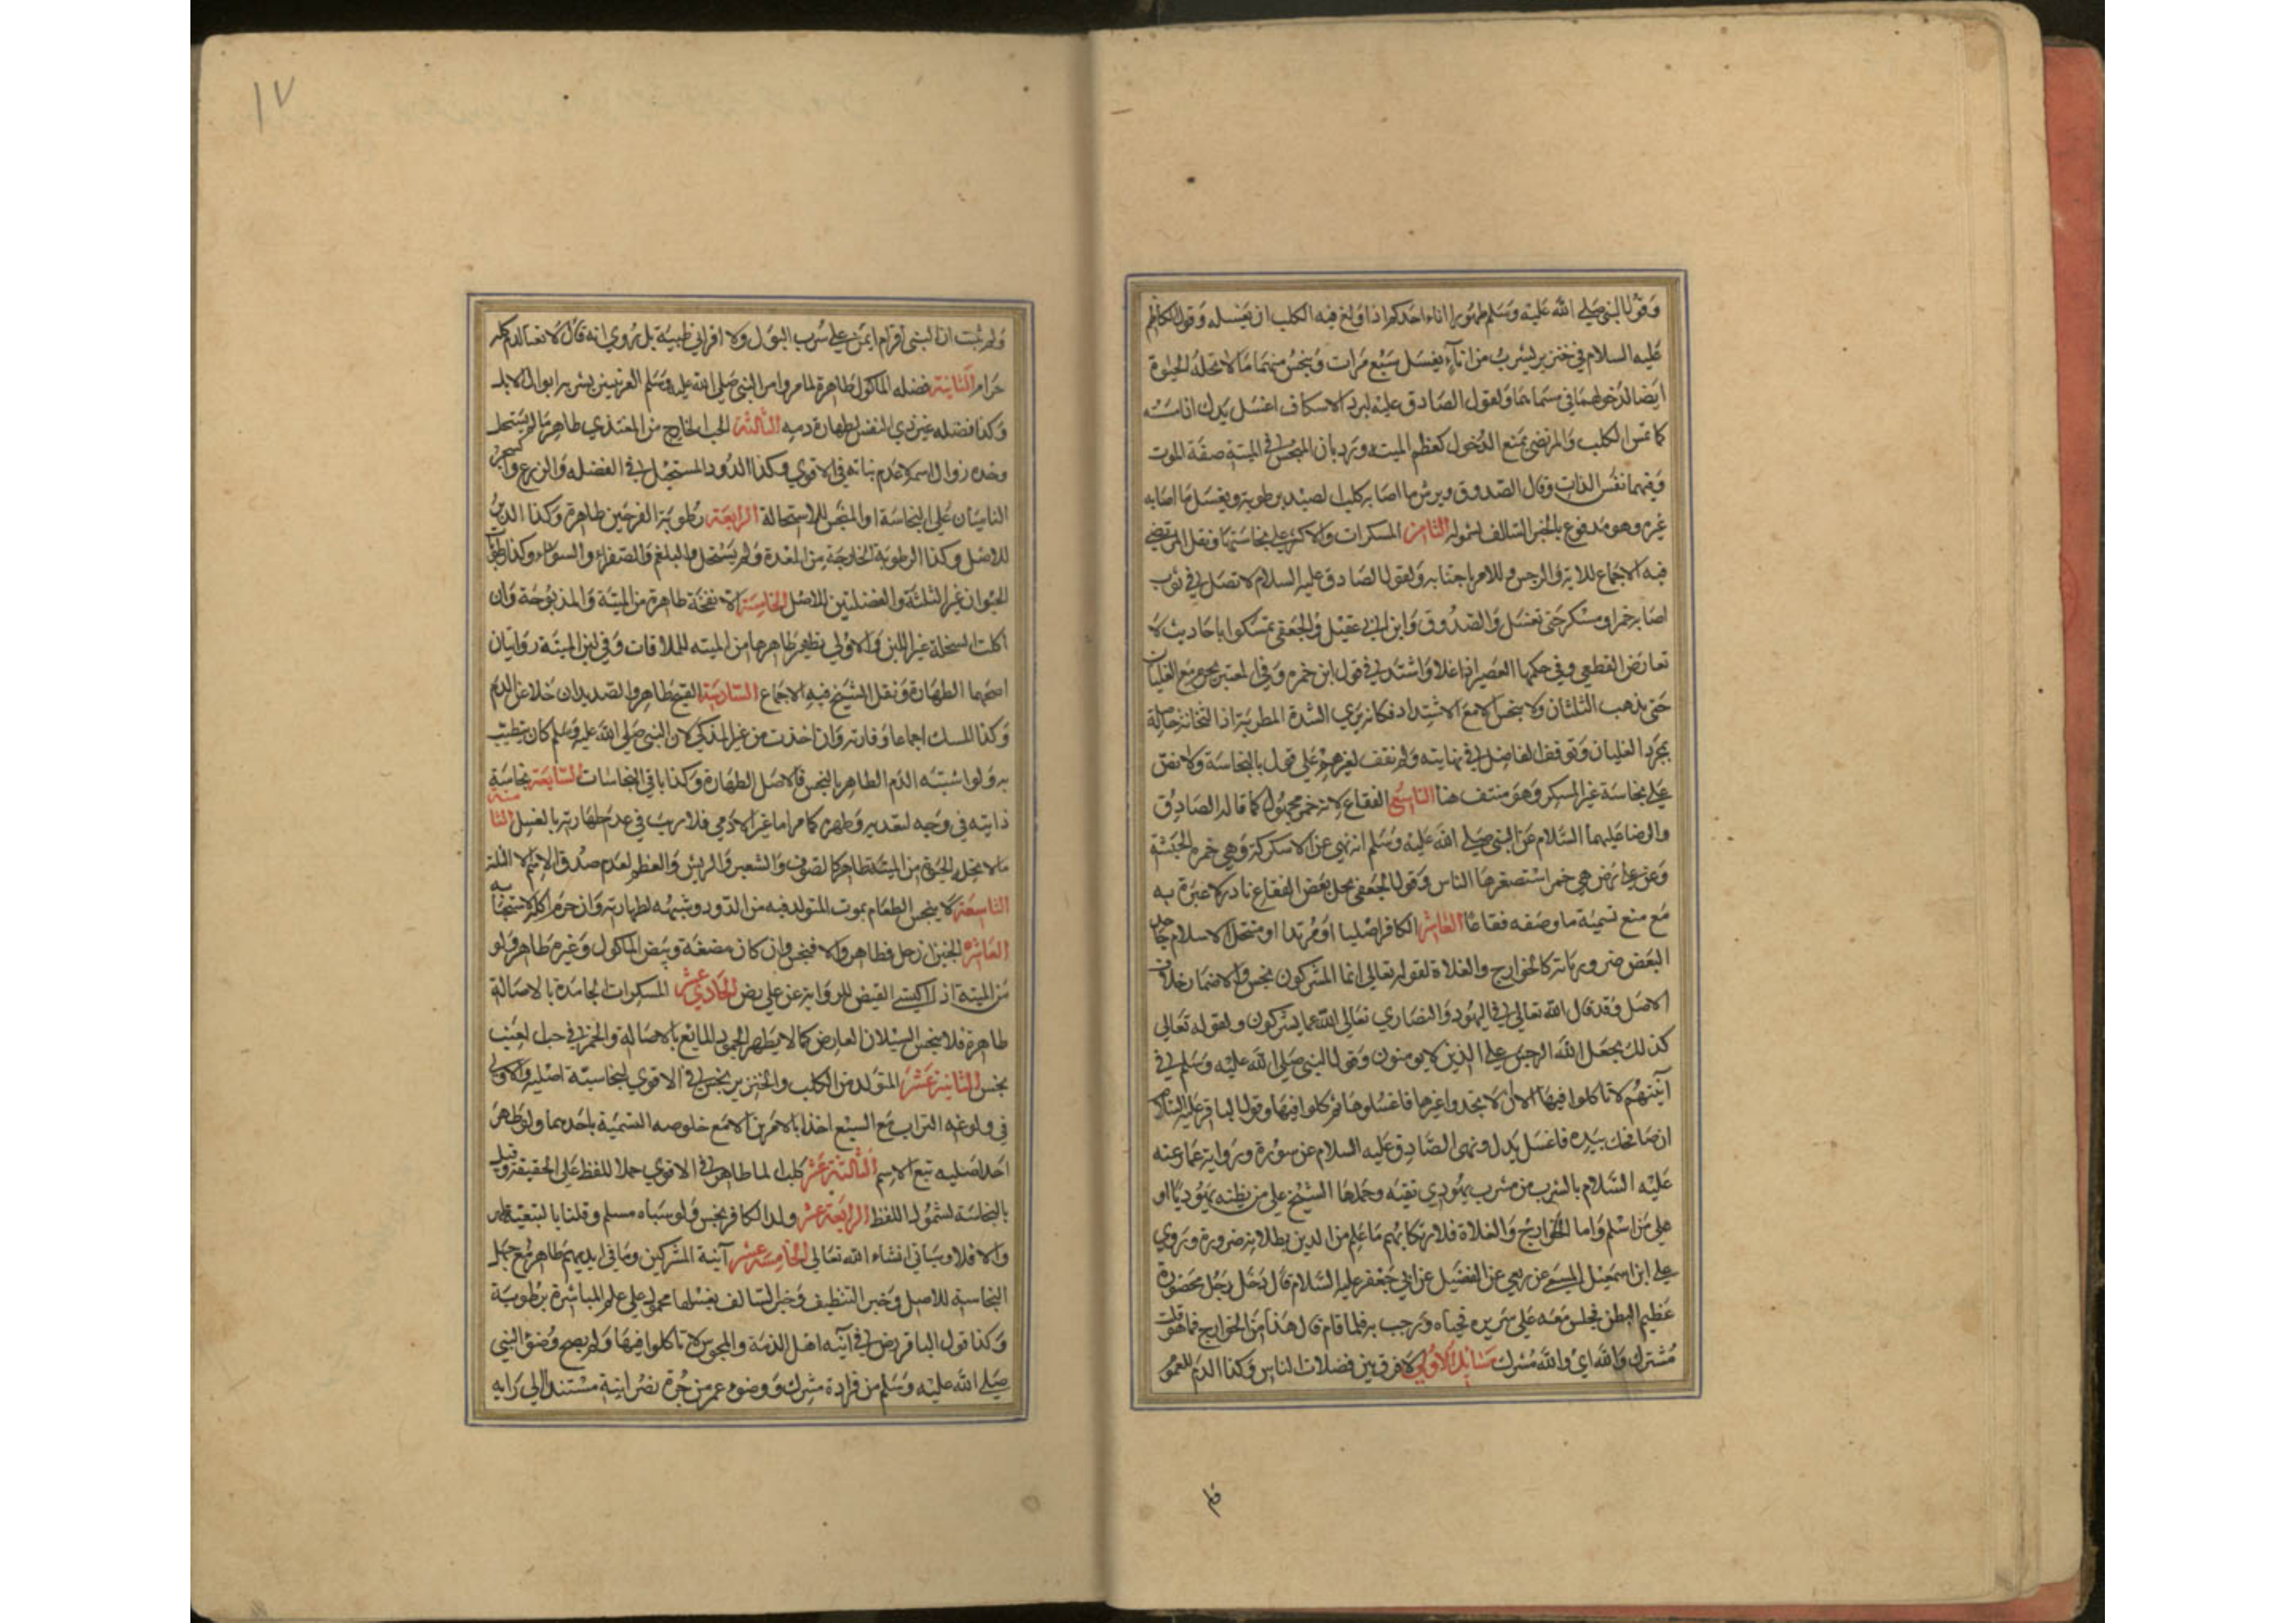 وقول النبي صلى الله عليه وسلم طهورا اناء احدكم اذا ولغ فيه الكلب ان يغسله وقول الكاظم
عليه السلام في خنزير يشرب من اناء يغسل سبع مرات وينجس منهما ما لا تحله الحيوة
ايضا لدخولهما في مسماهما ولقول الصادق عليه لبرد الاسكاف اغسل يدك اذا مسته
كما تمس الكلب والمرتضى يمنع الدخول كعظم الميتة ورد بان المنجس في الميتة صفة الموت
وفيهما نفس الذات وقال الصدوق ويرش ما اصابه كلب لصيد برطوبة ويغسل ما اصابه
غيره وهو مدفوع بالخبر السالف لشموله الثامن المسكرات والاكثر على نجاستها ونقل المرتضى
فيه الاجماع للاية والرجس وللامر باجتنابه ولقول الصادق عليه السلام لا تصل في ثوب
اصابه خمر او مسكر حتى تغسل والصدوق وابن ابي عقيل والجعفي تمسكوا باحاديث لا
تعارض القطعي وفي حكمها العصير اذا غلا واشتد في قول ابن حمزه وفي المعتبر يحرم مع الغليان
حتى يذهب الثلثان ولا ينجس الا مع الاشتداد فكانه يرى الشدة المطربة اذ الثخانة حاصلة
بمجرد الغليان وتوقف الفاضل في نهايته ولم نقف لغيرهم على قول بالنجاسة ولا نص
على نجاسة غير المسكر وهو منتف هنا التاسع الفقاع لانه خمر مجهول كما قاله الصادق
والرضا عليهما السلام عن النبي صلى الله عليه وسلم انه نهى عن الاسكركة وهي خمرة الحبشة
وعن علي رض هي خمر استصغرها الناس وقول الجعفي بحل بعض الفقاع نادر لا عبرة به
مع منع تسمية ما وصفه فقاعا العاشر الكافر اصليا او مرتدا او منتحل الاسلام جاحد
البعض ضرورياته كالخوارج والغلاة لقوله تعالى انما المشركون نجس والاضمار خلاف
الاصل وقد قال الله تعالى في اليهود والنصارى تعالى الله عما يشركون ولقوله تعالى
كذلك يجعل الله الرجس على الذين لا يومنون وقول النبي صلى الله عليه وسلم في
آنيتهم لا تاكلوا فيها الا ان لا تجدوا غيرها فاغسلوها ثم كلوا فيها وقول الباقر عليه السلام
ان صافحك بيده فاغسل يدك ونهى الصادق عليه السلام عن سوره ورواية عمار عنه
عليه السلام بالشرب من مشرب يهودي تقية وحملها الشيخ على من يظنه يهوديا او
على من اسلم واما الخوارج والغلاة فلارتكابهم ما علم من الدين بطلانه ضرورة وروى
علي ابن اسمعيل الميسمي عن ربعي عن الفضيل عن ابي جعفر عليه السلام قال دخل رجل محضورة
عظيم البطن فجلس معه على سريره فحياه ورحب به فلما قام قال هذا من الخوارج فما هو قلت
مشترك والله اي والله مشرك مسائل الاولى لا فرق بين فضلات الناس وكذا الدم للعموم
فلم
١٧
ولم يثبت ان النبي اقر ام ايمن على شرب البول ولا اقر ابي طيبة بل روي انه قال لا تعد الدم كله
حرام الثانية فضله الماكول طاهرة لما مر وامر النبي صلى الله عليه وسلم العرنيين بشرب ابوال الابل
وكذا فضله غير ذي النفس لطهارة دمه الثالثة الحب الخارج من المغتذي طاهر ما لم يستحل
وحده زوال اسمه لا عدم نباته في الاقوى وكذا الدود المستحيل في الفضله والزرع والشجر
الناميان على النجاسة او المتنجس للاستحالة الرابعة رطوبة الفرجين طاهرة وكذا الدبر
للاصل وكذا الرطوبة الخارجة من المعدة ولم يستحل والبلغم والصفراء والسوداء وكذا رطوبة
الحيوان غير الثلثة والفضلتين للاصل الخامسة الانفحة طاهرة من الميتة والمذبوحة وان
اكلت السخلة غير اللبن والاولى تطهير ظاهرها من الميته للملاقات وفي لبن الميتة روايتان
اصحهما الطهارة ونقل الشيخ فيه الاجماع السادسة القيح طاهر والصديد ان خلا عن الدم
وكذا المسك اجماعا وفارته وان اخذت من غير المذكى لان النبي صلى الله عليه وسلم كان يتطيب
به ولو اشتبه الدم الطاهر بالنجس فالاصل الطهارة وكذا باقي النجاسات السابعة نجاسة
ذاتيته في وجيه لتعديه وتطهره كما مر اما غير الادمي فلا ريب في عدم طهارته بالغسل الثامنة
ما لا تحله الحيوة من الميتة طاهر كالصوف والشعر والريش والعظم لعدم صدق الاسم الا الثلثة
التاسعة لا ينجس الطعام بموت المتولد فيه من الدود وشبهه لطهارته وان حرم اكله لاستخباثه
العاشرة الجنين ان حل فطاهر والا فنجس وان كان مضغة وبيض الماكول وغيره طاهر ولو
من الميتة اذا اكتسى القيض للرواية عن علي رض الحادي عشر المسكرات الجامدة بالاصالة
طاهرة فلا ينجس السيلان العارض كما لا يطهر الجمود المايع بالاصالة والخمر في حب العنب
نجس الثانية عشر المتولد من الكلب والخنزير نجس في الاقوى لنجاسته اصليه والاولى
في ولوغه التراب مع السبع اخذا بالامرين الا مع خلوصه التسمية باحدهما ولو طهر
احد اصليه تبع الاسم الثالثة عشر كلب الما طاهر في الاقوى حملا للفظ على الحقيقة وقيل
بالنجاسة لشمول اللفظ الرابعة عشر ولد الكافر نجس ولو سباه مسلم وقلنا بالتبعية طهر
والا فلا وسياتي انشاء الله تعالى الخامسة عشر آنية المشركين وما في ايديهم طاهر مع جهل
النجاسة للاصل وخبر التنظيف وخبر السالف بغسلها محمول على علم المباشرة برطوبة
وكذا قول الباقر رض في آنية اهل الذمة والمجوس لا تاكلوا فيها ولم يصح وضوء النبي
صلى الله عليه وسلم من مزادة مشرك ووضوء عمر من جرة نصرانية مستند الى رايه